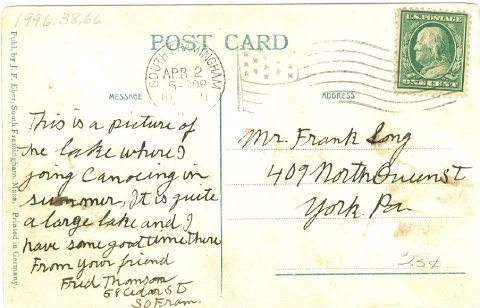 1996.38.66
POST CARD
U.S. POSTAGE
ONE CENT
SOUTH FRAMINGHAM
APR 2
5-30P
MESSAGE
ADDRESS
Publ. by J. F. Eber, South Framingham, Mass. Printed in Germany.
This is a picture of
the lake where I
going Canoeing in
summer, It is quite
a large lake and I
have some good times there
From your friend
Fred Thomson
58 Cedar St
So Fram.
Mr. Frank Long
409 North Queen St
York. Pa
25¢